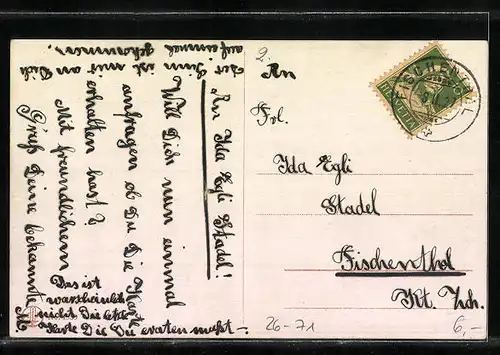 An Ida Egli Stadel!
Will Dich nun einmal
anfragen ob Du Die Karte
erhalten hast?
Mit freundlichem
Gruß Deine bekannte
M
Das ist
warscheinlich
nicht Die letzte
Karte Die Du eraten mußt –
Der Sinn ist mir an Dich
auf einmal gekommen.
2.
An
Frl.
Ida Egli
Stadel
Fischenthal
Kt. Zch.
HELVETIA
26-71
6,-